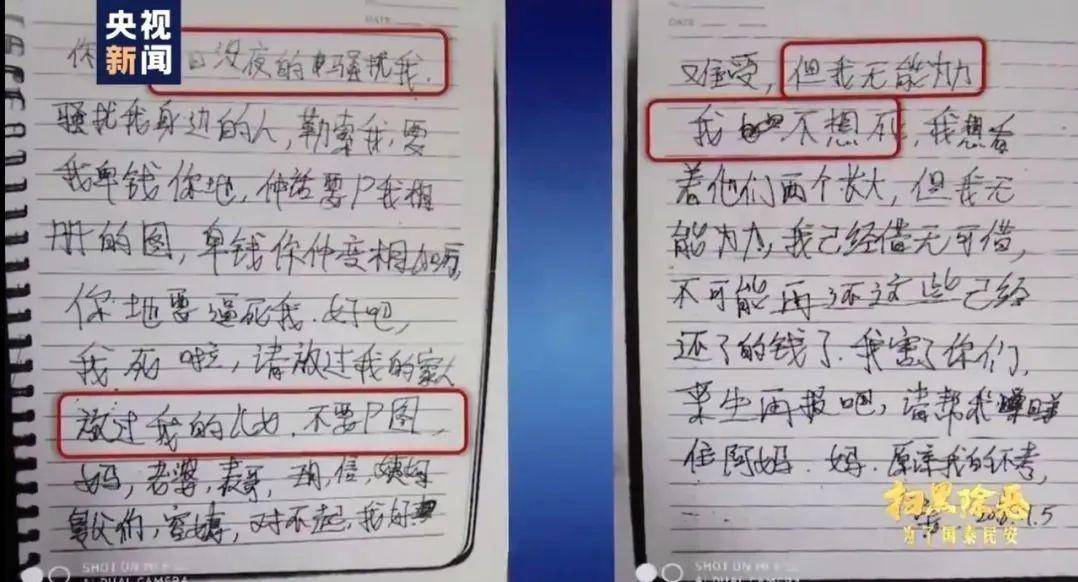 央视
新闻
DATE
你 日没夜的 骚扰我.
骚扰我身边的人,勒索我,要
我卑钱你地,仲话要P我相
册的图,卑钱你仲变相
你地要逼死我.好吧,
我死啦,请放过我的家人
放过我的儿女.不要P图,
妈,老婆,表哥, 信,姨妈
舅父们, 对不起,我好
SHOT ON MI
AI DUAL CAMERA
DATE
难受,但我无能为力
我 不想死,我想看
着他们两个长大,但我无
能为力,我已经借无可借,
不可能再还这些已经
还了的钱了.我害了你们,
来生再报吧,请帮我
住阿妈.妈.原谅我的不孝,
1.5
扫黑除恶
为了国泰民安
SHOT ON MI
AI DUAL CAMERA